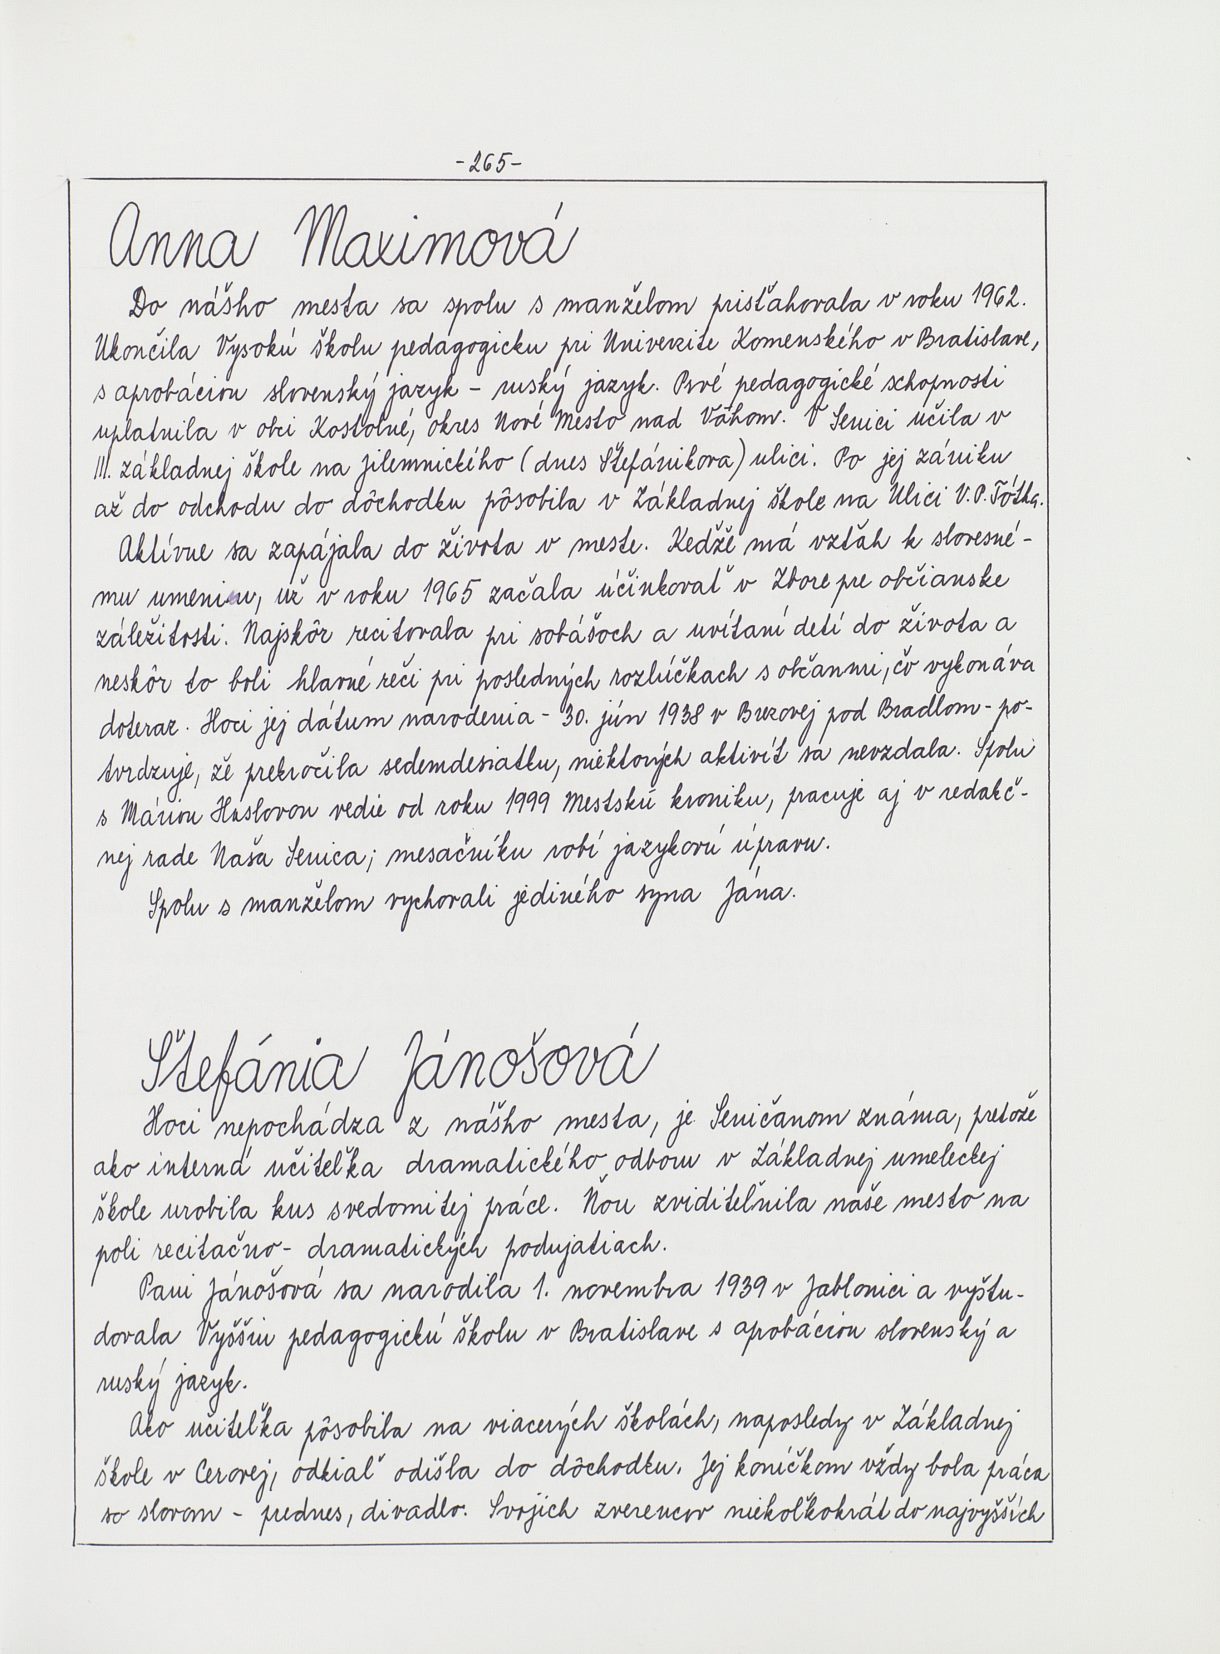 -265-
Anna Maximová
Do nášho mesta sa spolu s manželom prisťahovala v roku 1962.
Ukončila Vysokú školu pedagogicku pri Univerzite Komenského v Bratislave,
s aprobáciou slovenský jazyk - ruský jazyk. Prvé pedagogické schopnosti
uplatnila v obci Kostolné, okres Nové Mesto nad Váhom. V Senici učila v
III. základnej škole na Jilemnického (dnes Štefánikova) ulici. Po jej zániku
až do odchodu do dôchodku pôsobila v Základnej škole na Ulici V. P. Tótha.
Aktívne sa zapájala do života v meste. Keďže má vzťah k slovesné-
mu umeniu, už v roku 1965 začala účinkovať v Zbore pre občianske
záležitosti. Najskôr recitovala pri sobášoch a uvítaní detí do života a
neskôr to boli hlavné reči pri posledných rozlúčkach s občanmi, čo vykonáva
doteraz. Hoci jej dátum narodenia - 30. jún 1938 v Brezovej pod Bradlom - po-
tvrdzuje, že prekročila sedemdesiatku, niektorých aktivít sa nevzdala. Spolu
s Máriou Huslovou vedie od roku 1999 Mestskú kroniku, pracuje aj v redakč-
nej rade Naša Senica; mesačníku robí jazykovú úpravu.
Spolu s manželom vychovali jediného syna Jána.
Štefánia Jánošová
Hoci nepochádza z nášho mesta, je Seničanom známa, pretože
ako interná učiteľka dramatického odboru v Základnej umeleckej
škole urobila kus svedomitej práce. Ňou zviditeľnila naše mesto na
poli recitačno - dramatických podujatiach.
Pani Jánošová sa narodila 1. novembra 1939 v Jablonici a vyštu-
dovala Vyššiu pedagogickú školu v Bratislave s aprobáciou slovenský a
ruský jazyk.
Ako učiteľka pôsobila na viacerých školách, naposledy v Základnej
škole v Cerovej, odkiaľ odišla do dôchodku. Jej koníčkom vždy bola práca
so slovom - prednes, divadlo. Svojich zverencov niekoľkokrát do najvyšších